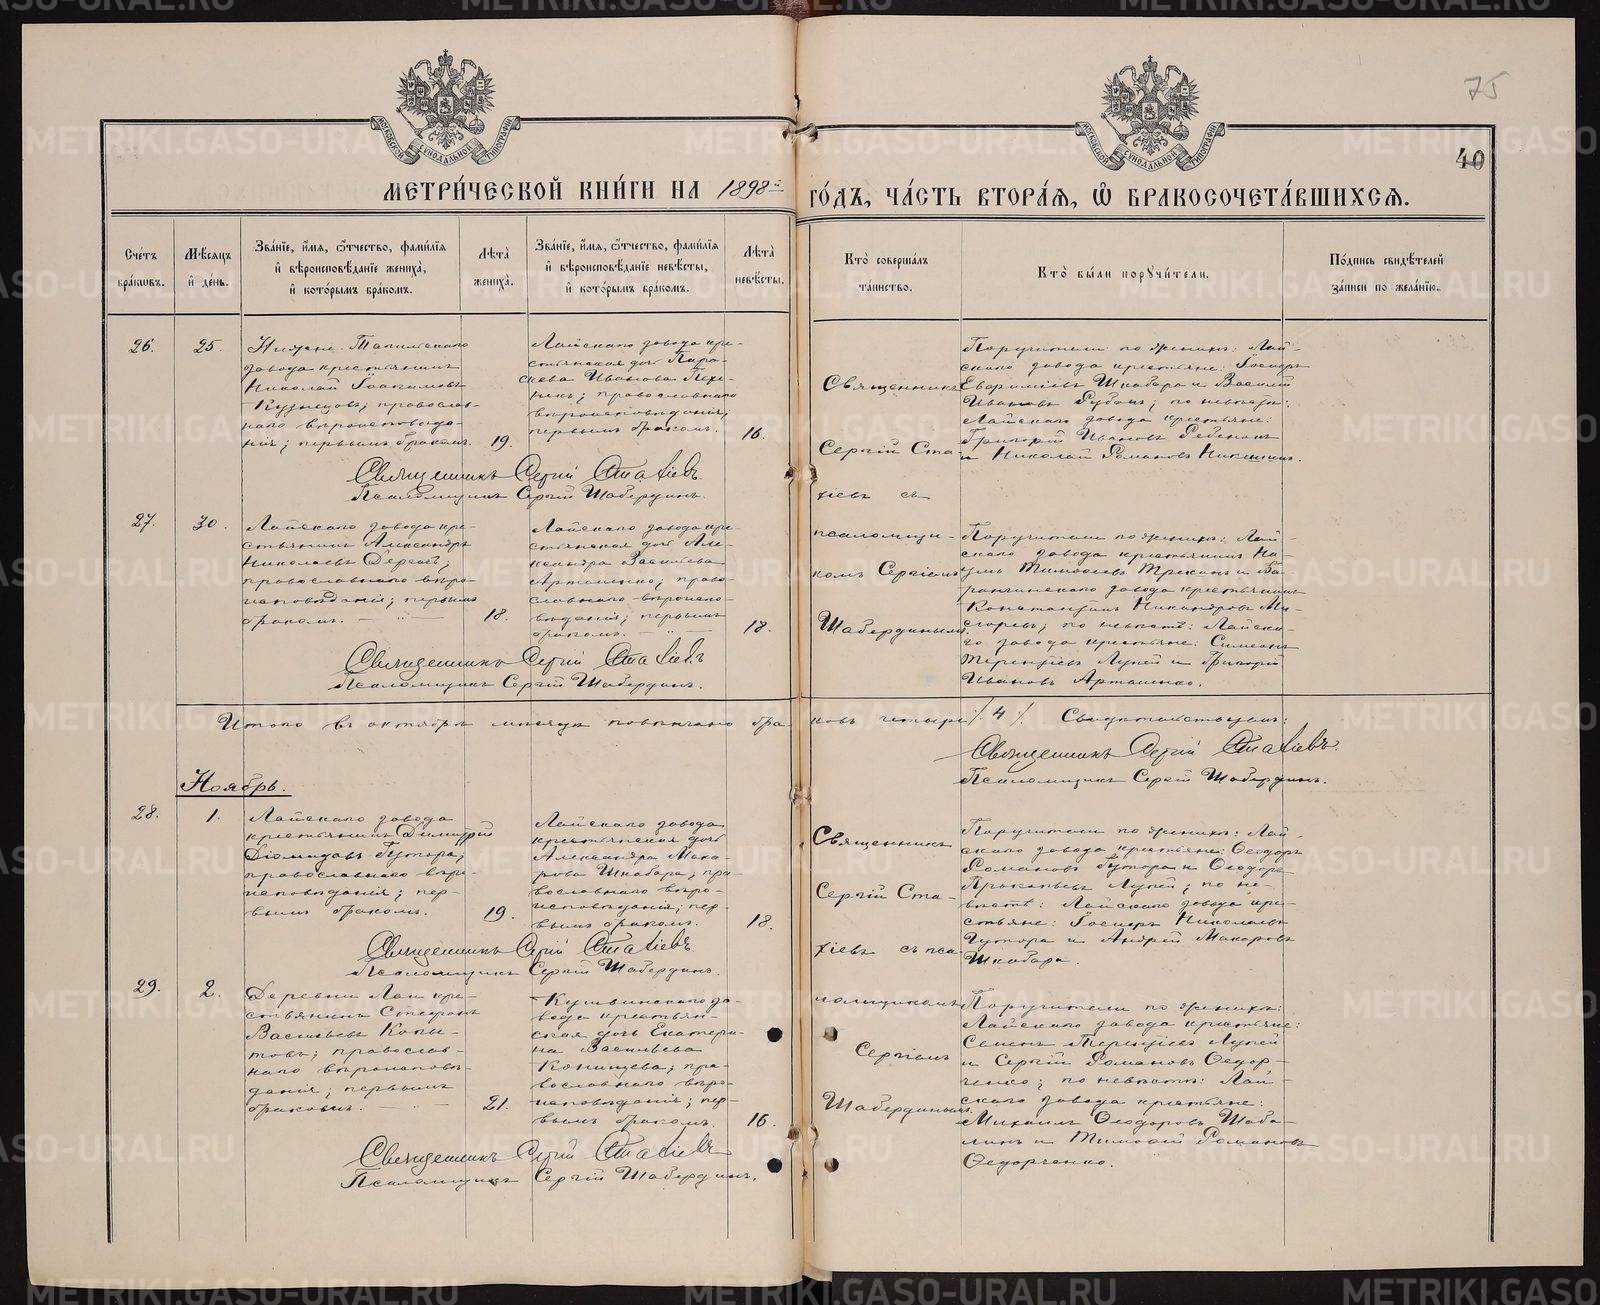 75
40
МОСКОВСКОЙ СѴНОДАЛЬНОЙ ТИПОГРАФІИ
МОСКОВСКОЙ СѴНОДАЛЬНОЙ ТИПОГРАФІИ
МЕТРИ́ЧЕСКОЙ КНИ́ГИ НА 1898й ГО́ДЪ, ЧА́СТЬ ВТОРА́Я, Ѽ БРАКОСОЧЕТА́ВШИХСѦ.
Сче́тъ бра́ковъ.
Мѣ́сяцъ и́ де́нь.
Зва́нїе, и́мя, ѻ҆́тчество, фами́лїя и́ вѣроисповѣ́данїе жениха̀, и́ кото́рымъ бра́комъ.
Лѣ́та̀ жениха̀.
Зва́нїе, и́мя, ѻ҆́тчество, фами́лїя и́ вѣроисповѣ́данїе невѣ́сты, и́ кото́рымъ бра́комъ.
Лѣ́та̀ невѣ́сты.
Кто̀ соверша́лъ та́инство.
Кто̀ бы́ли поруч́ители.
По́дпись свидѣ́телей за́писи по жела́нїю.
26.
25.
Нижне-Тагильскаго
завода крестьянинъ
Николай Іоакимовъ
Кузнецовъ; православ-
наго вѣроисповѣда-
нія; первымъ бракомъ.
19.
Лайскаго завода кре-
стьянская дочь Пара-
скева Иванова
православнаго
вѣроисповѣданія;
первымъ бракомъ.
16.
Священникъ
Сергій Ста-
хіевъ съ
псаломщи-
комъ Сергіемъ
Шабердинымъ.
Поручители по женихѣ: Лай-
скаго завода крестьяне: Іосифъ
Шкабара и Василій
Ивановъ Рубанъ; по невѣстѣ:
Лайскаго завода крестьяне:
Григорій Ивановъ
и Николай Романовъ
Священникъ Сергій Стахіевъ.
Псаломщикъ Сергій Шабердинъ.
27.
30.
Лайскаго завода кре-
стьянинъ Александръ
Николаевъ
православнаго вѣро-
исповѣданія; первымъ
бракомъ.
18.
Лайскаго завода кре-
стьянская дочь Але-
ксандра Васильева
Арташенко; право-
славнаго вѣроиспо-
вѣданія; первымъ
бракомъ.
18.
Поручители по женихѣ: Лай-
скаго завода крестьянинъ На-
умъ Тимофеевъ и Ба-
ранчинскаго завода крестьянинъ
Константинъ Никандровъ
по невѣстѣ: Лайска-
го завода крестьяне: Симеонъ
Терентіевъ Лупей и Григорій
Ивановъ Арташенко.
Священникъ Сергій Стахіевъ
Псаломщикъ Сергій Шабердинъ.
Итого въ октябрѣ мѣсяцѣ повѣнчано бра-ковъ четыре /4/. Свидѣтельствуемъ:
Священникъ Сергій Стахіевъ.
Псаломщикъ Сергій Шабердинъ.
Ноябрь.
28.
1.
Лайскаго завода
крестьянинъ Димитрій
Діомидовъ Гутора;
православнаго вѣро-
исповѣданія; пер-
вымъ бракомъ.
19.
Лайскаго завода
крестьянская дочь
Александра Мака-
рова Шкабара; пра-
вославнаго вѣро-
исповѣданія; пер-
вымъ бракомъ.
18.
Священникъ
Сергій Ста-
хіевъ съ пса-
ломщикомъ
Сергіемъ
Шабердинымъ.
Поручители по женихѣ: Лай-
скаго завода крестьяне: Ѳеодоръ
Романовъ Гутора и Ѳеодоръ
Прокопьевъ Лупей; по не-
вѣстѣ: Лайскаго завода кре-
стьяне: Іосифъ Николаевъ
Гутора и Андрей Макаровъ
Шкабара.
Священникъ Сергій Стахіевъ
Псаломщикъ Сергій Шабердинъ.
29.
2.
Деревни Лаи кре-
стьянинъ Стефанъ
Васильевъ Копы-
товъ; православ-
наго вѣроисповѣ-
данія; первымъ
бракомъ.
21.
Кушвинскаго за-
вода крестьян-
ская дочь Екатери-
на Васильева
пра-
вославнаго вѣро-
исповѣданія; пер-
вымъ бракомъ.
16.
Поручители по женихѣ:
Лайскаго завода крестьяне:
Семенъ Терентіевъ Лупей
и Сергій Романовъ Ѳедор-
ченко; по невѣстѣ: Лай-
скаго завода крестьяне:
Михаилъ Ѳеодоровъ Шаба-
линъ и Тимофей Романовъ
Ѳедорченко.
Священникъ Сергій Стахіевъ
Псаломщикъ Сергій Шабердинъ.
METRIKI.GASO-URAL.RU